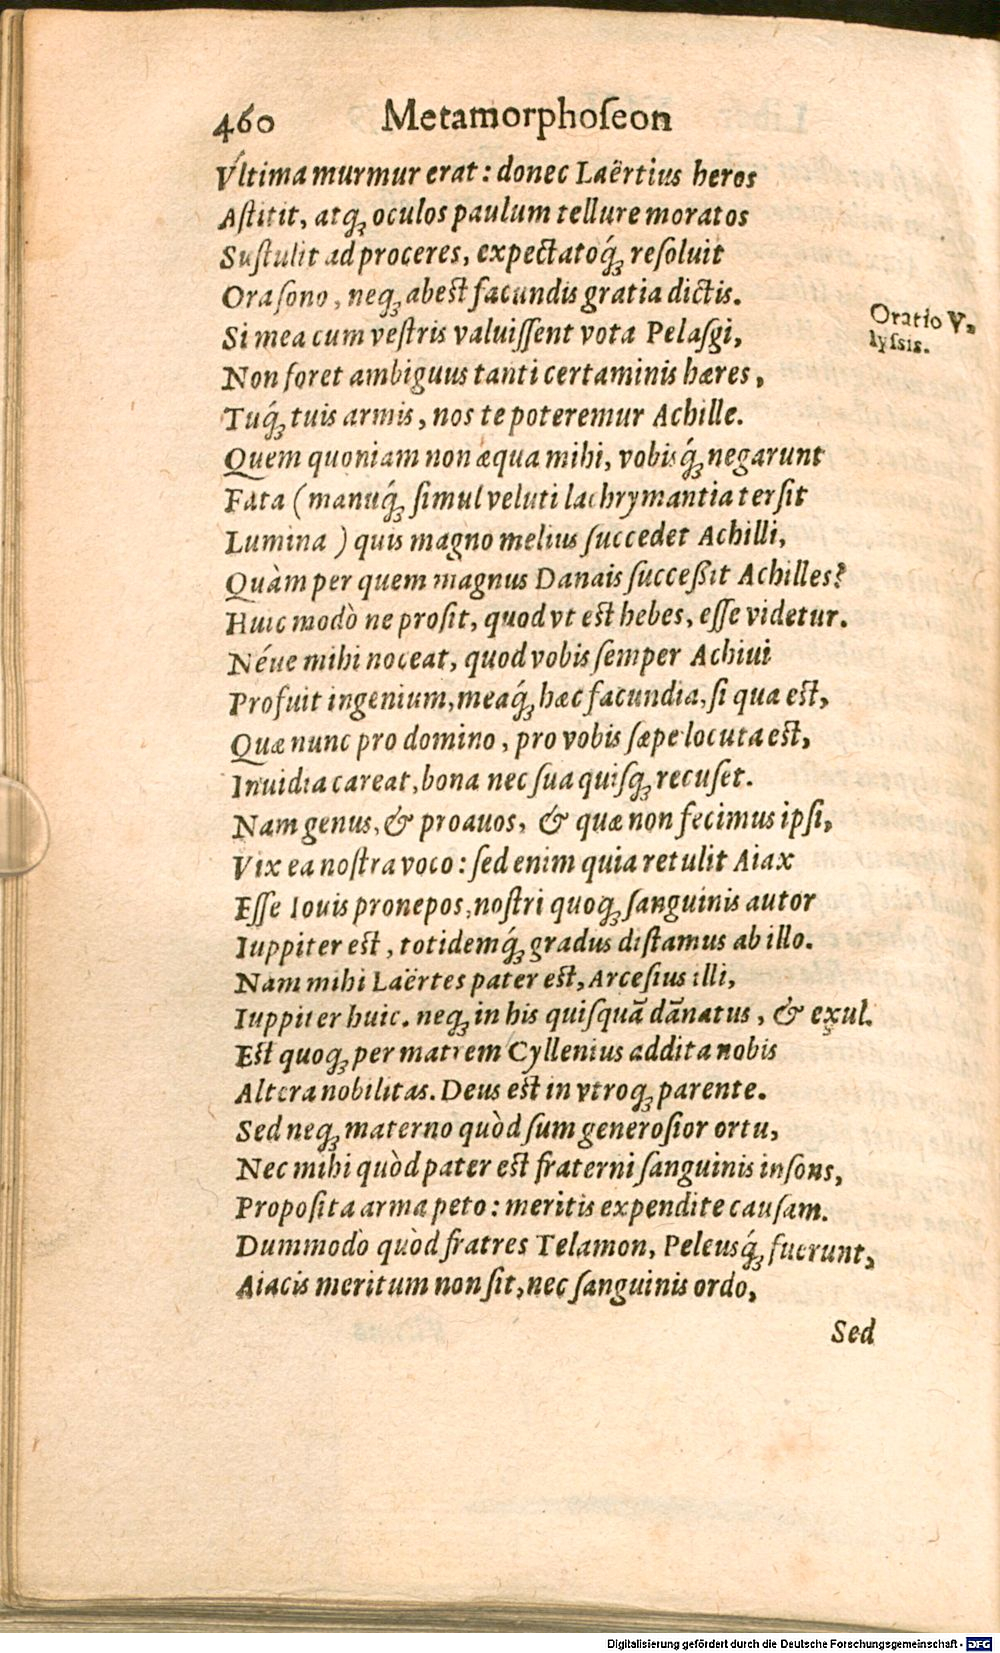 460 Metamorphoſeon
Vltima murmur erat: donec Laërtius heros
Aſtitit, atq́ꝫ oculos paulum tellure moratos
Suſtulit ad proceres, expectatoq́ꝫ reſoluit
Ora ſono, neqꝫ abest facundis gratia dictis.
Oratio V-
lyſsis.
Si mea cum veſtris valuiſſent vota Pelaſgi,
Non foret ambiguus tanti certaminis hæres,
Tuq́ꝫ tuis armis, nos te poteremur Achille.
Quem quoniam non æqua mihi, vobisq́ꝫ negarunt
Fata (manuq́ꝫ ſimul veluti lachrymantia terſit
Lumina) quis magno melius ſuccedet Achilli,
Quàm per quem magnus Danais ſucceßit Achilles?
Huic modò ne proſit, quod vt est hebes, eſſe videtur.
Néue mihi noceat, quod vobis ſemper Achiui
Profuit ingenium, meaq́ꝫ hæc facundia, ſi qua est,
Quæ nunc pro domino, pro vobis ſæpe locuta est,
Inuidia careat, bona nec ſua quiſqꝫ recuſet.
Nam genus, & proauos, & quæ non fecimus ipſi,
Vix ea noſtra voco: ſed enim quia retulit Aiax
Eſſe Iouis pronepos, noſtri quoqꝫ ſanguinis autor
Iuppiter est, totidemq́ꝫ gradus diſtamus ab illo.
Nam mihi Laërtes pater est, Arceſius illi,
Iuppiter huic. neqꝫ in his quiſquā dānatus, & exul.
Est quoqꝫ per matrem Cyllenius addita nobis
Altera nobilitas. Deus est in vtroqꝫ parente.
Sed neqꝫ materno quòd ſum generoſior ortu,
Nec mihi quòd pater est fraterni ſanguinis inſons,
Propoſita arma peto: meritis expendite cauſam.
Dummodo quòd fratres Telamon, Peleusq́ꝫ fuerunt,
Aiacis meritum non ſit, nec ſanguinis ordo,
Sed
Digitalisierung gefördert durch die Deutsche Forschungsgemeinschaft - DFG